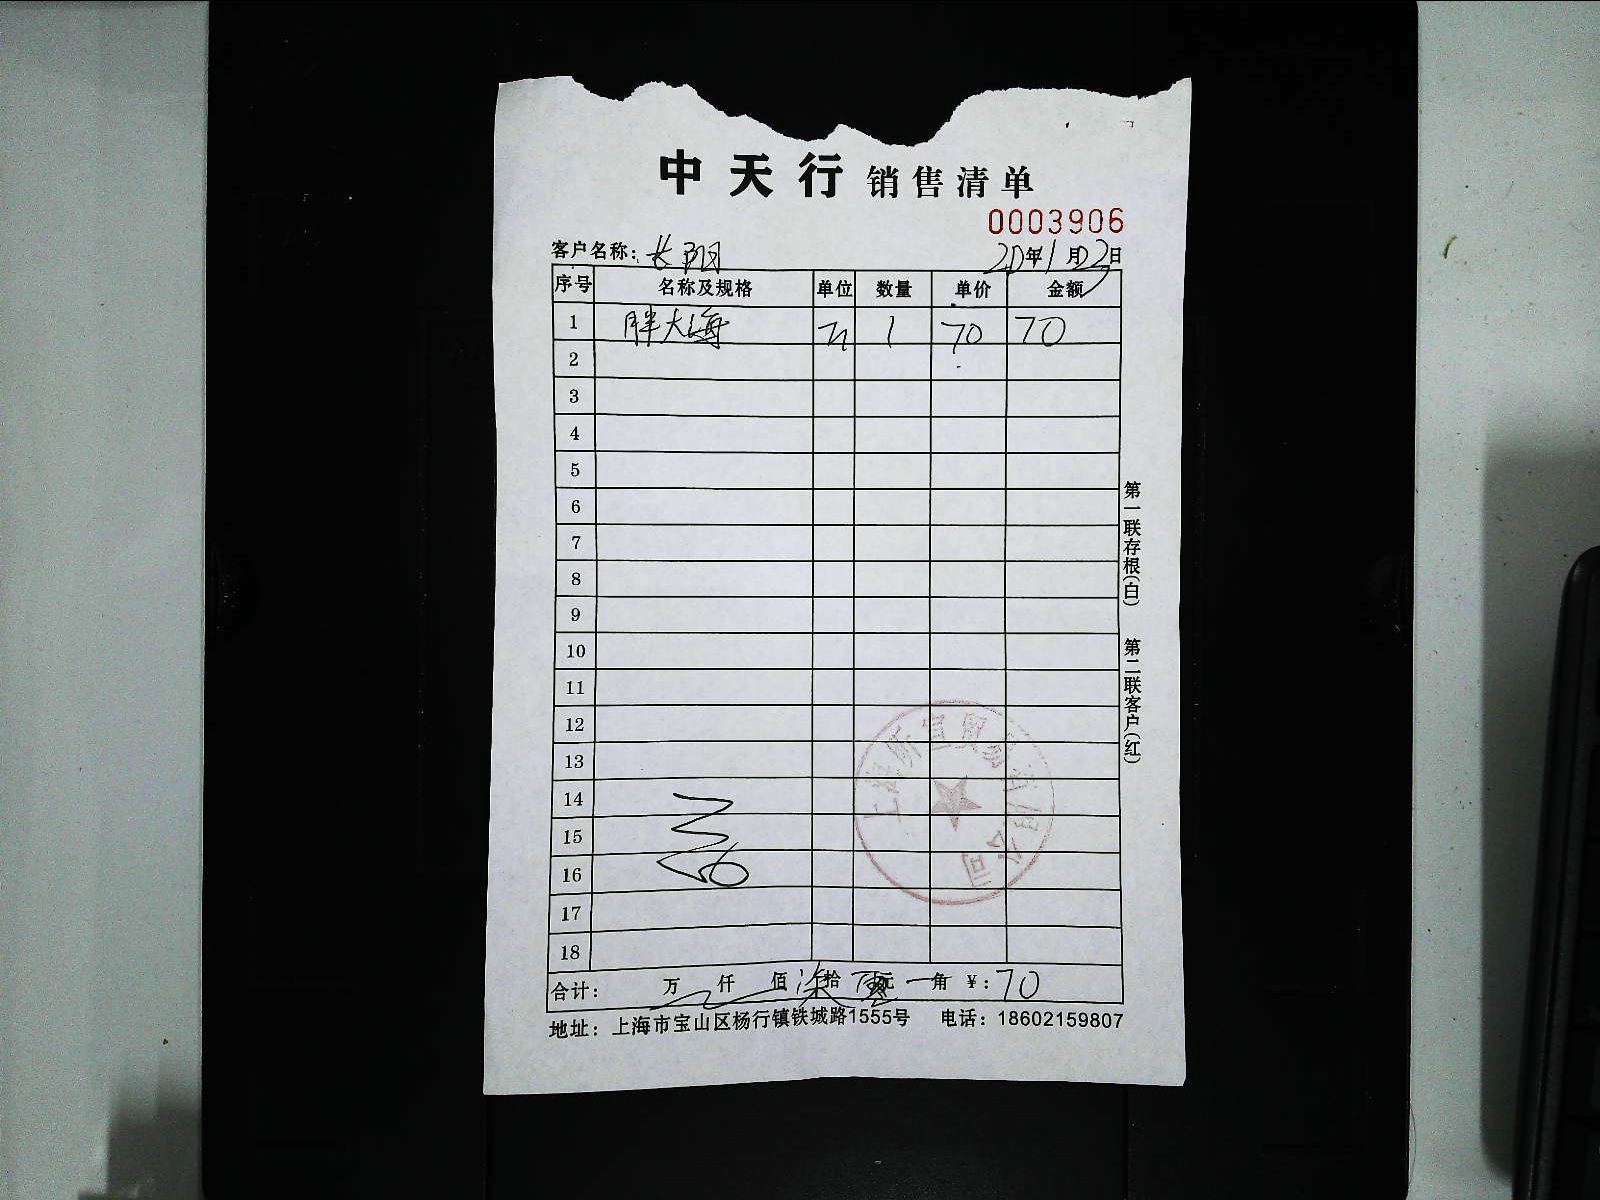 中天行 销售清单
0003906
客户名称: 长阳 20年1月02日
序号 名称及规格 单位 数量 单价 金额
1 胖大海 1 70 70
2
3
4
5
6
7
8
9
10
11
12
13
14
15
16
17
18
合计: 万 仟 佰 柒拾 零元 角 ¥: 70
地址: 上海市宝山区杨行镇铁城路1555号 电话: 18602159807
第一联存根(白) 第二联客户(红)